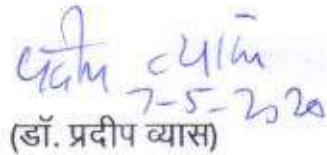 प्रदीप व्यास
7-5-2020
(डॉ. प्रदीप व्यास)